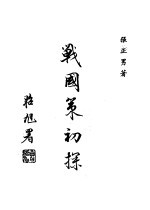 張正男著
戰國策初探
莊旭署